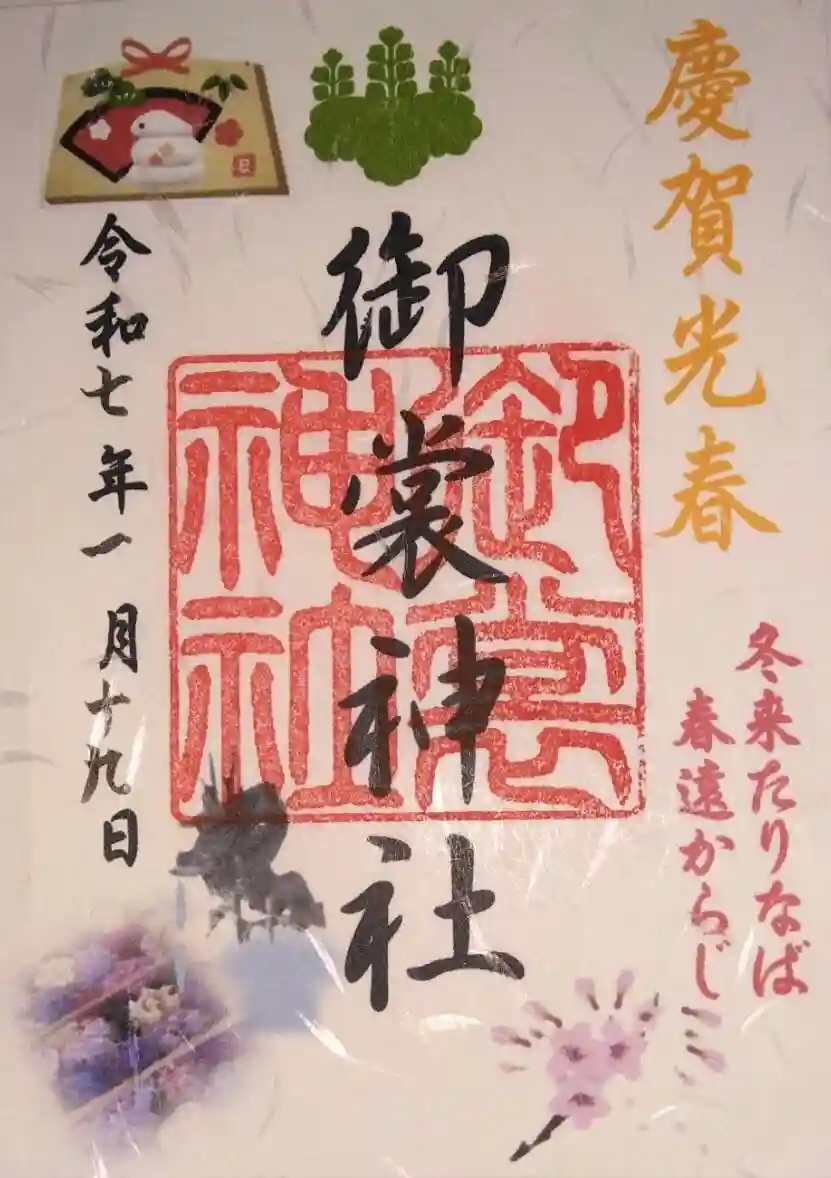 慶賀光春
冬来たりなば
春遠からじ
御裳神社
御裳
神社
令和七年一月十九日
巳